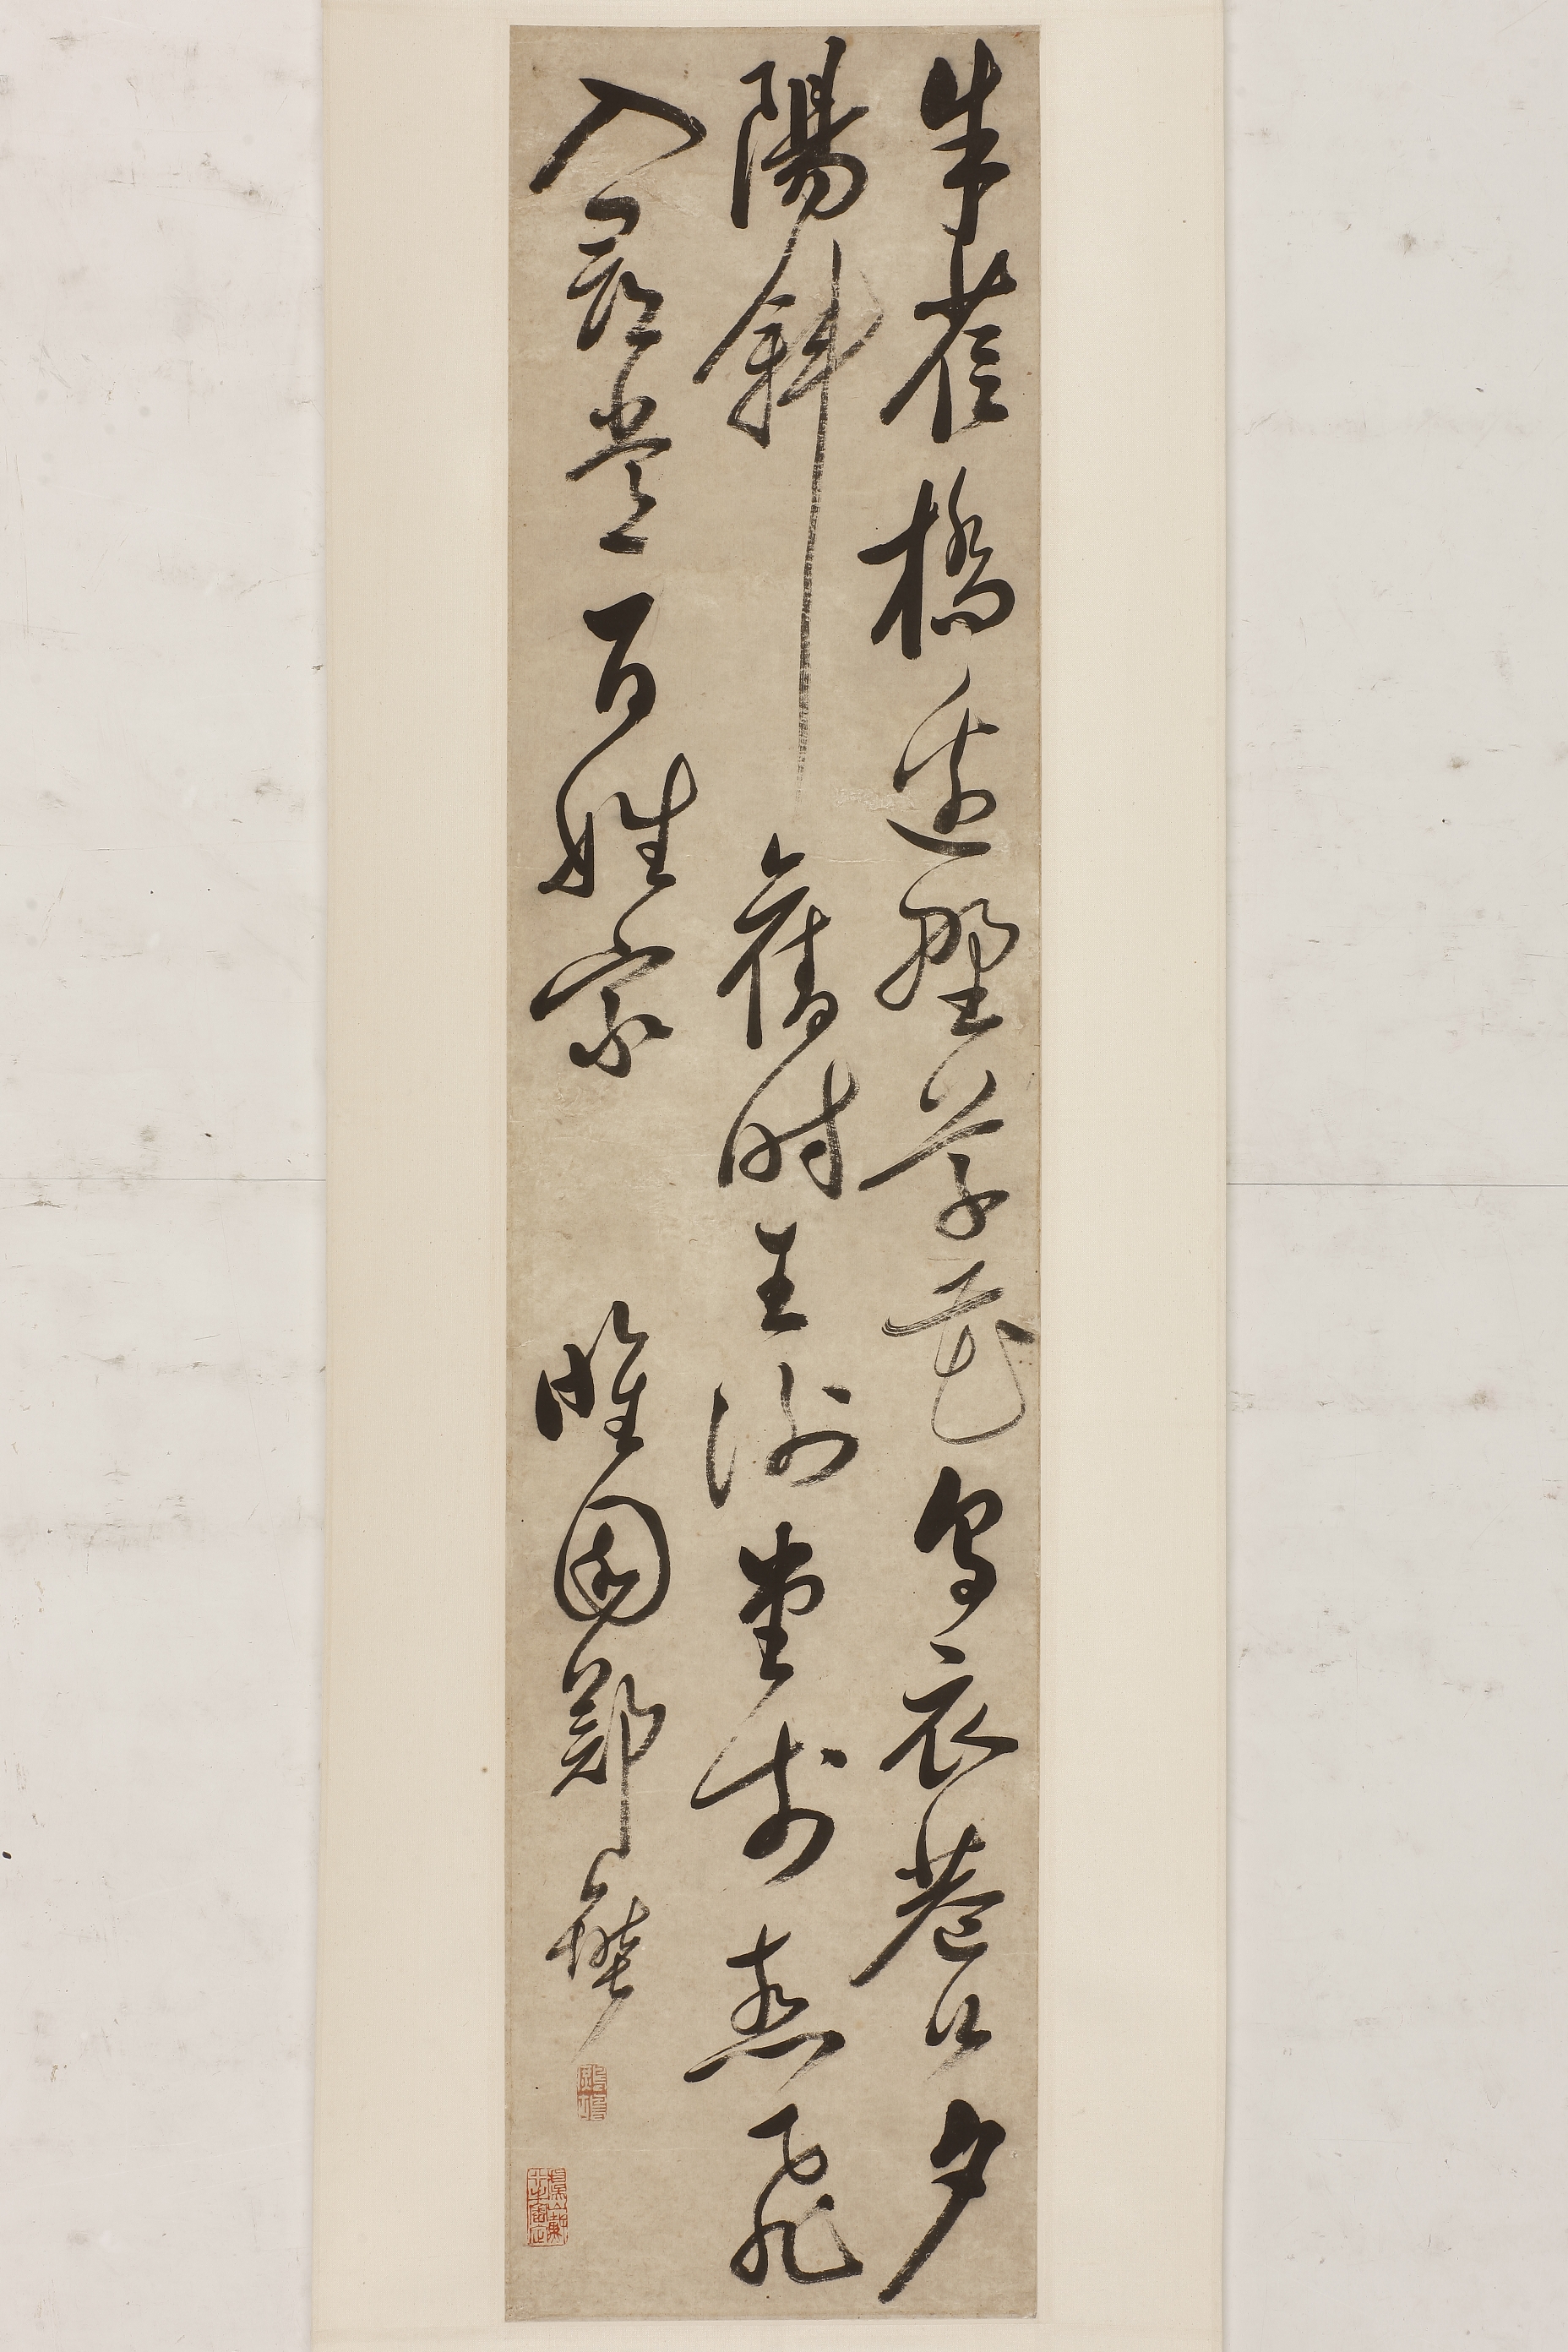 朱雀橋邊野草花烏衣巷口夕
陽斜舊時王謝堂前燕飛
入尋常百姓家 園鄭